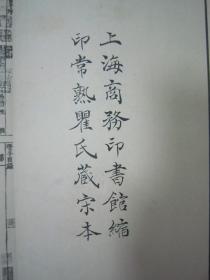 上海商務印書館縮
印常熟瞿氏藏宋本